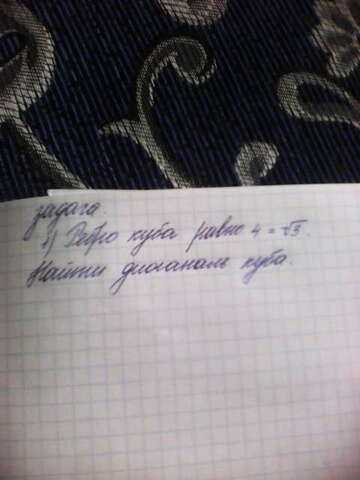 задача.
1) Ребро куба равно 4 = √3.
Найти диоганаль куба.